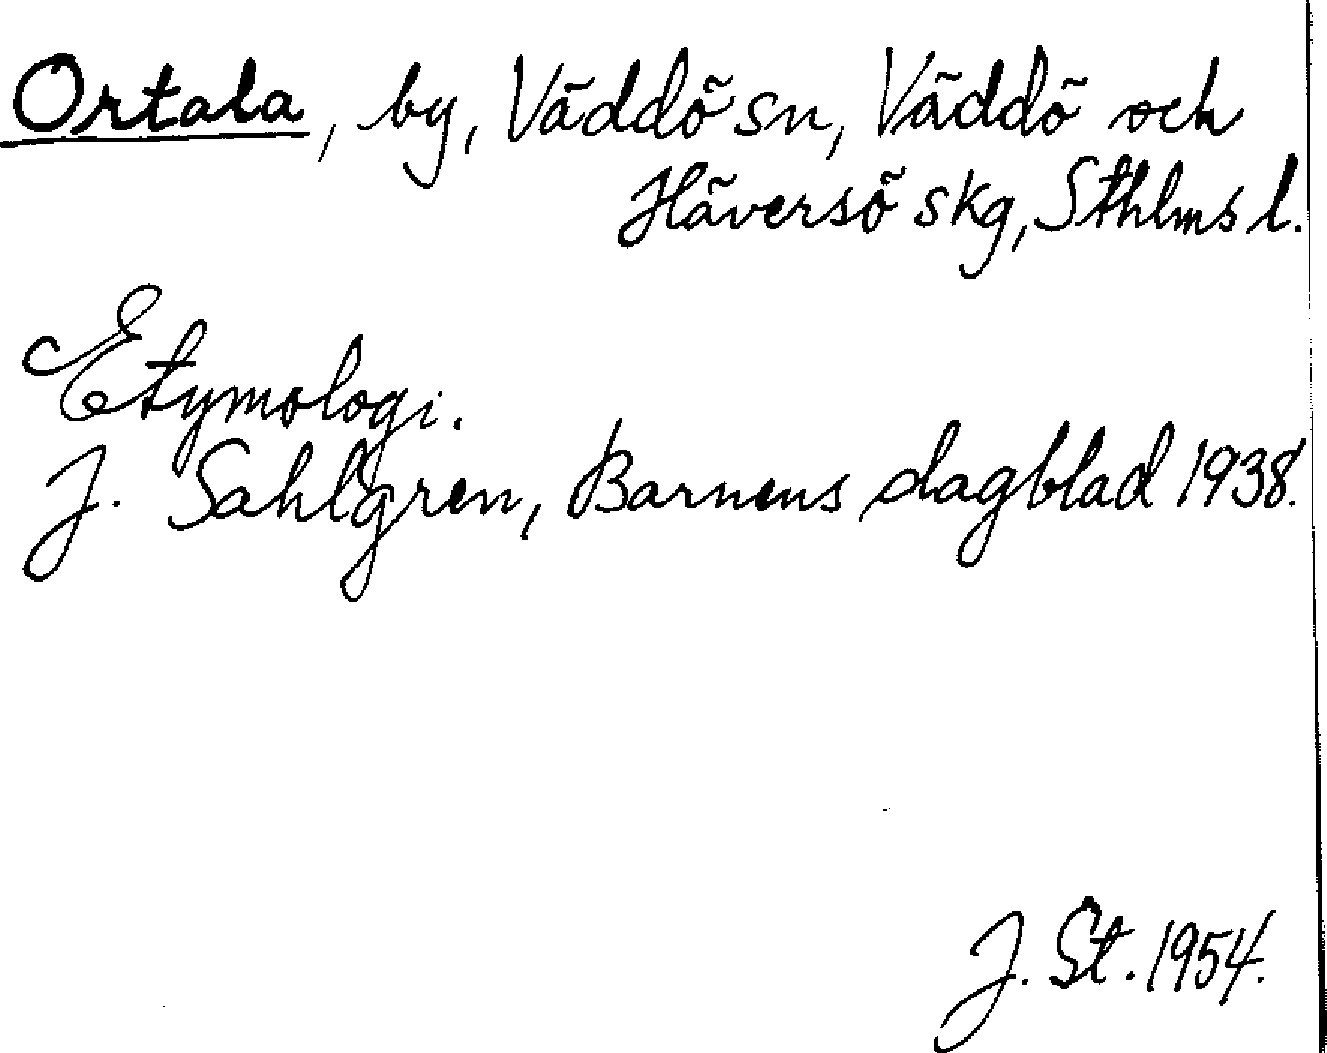 Ortala, by, Väddö sn, Väddö och
Häversö skg, Sthlms l.
Etymologi.
J. Sahlgren, Barnens dagblad 1938.
J. St. 1954.